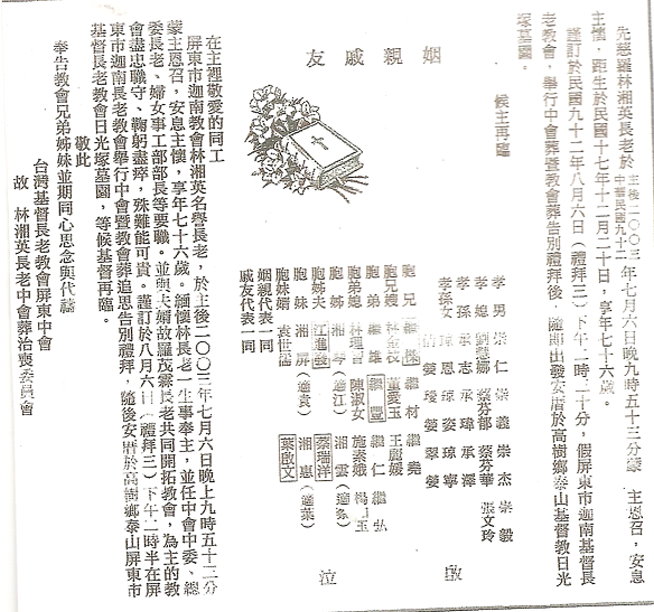 先慈羅林湘英長老於
主後二〇〇三
中華民國九十二
年七月六日晚九時五十三分蒙　主恩召，安息
主懷，距生於民國十七年十二月二十日，享年七十六歲。
謹訂於民國九十二年八月六日（禮拜三）下午二時二十分，假屏東市迦南基督長
老教會，舉行中會葬暨教會葬告別禮拜後，隨即出發安厝於高樹鄉泰山基督教日光
塚墓園。
候主再臨
姻親戚友
孝男　崇仁　崇義　崇杰　崇毅
孝媳　劉慧娜　蔡芬郁　蔡芬華　張文玲
孝孫　承志　承瑋　承澤
孝孫女
胞兄
胞兄嫂　董愛玉　王麗媛
胞弟　繼雄　繼豐　繼仁　繼弘
胞弟媳　林理香　陳淑女　施素娥
胞姊　湘琴（適江）　湘雲（適蔡）
胞姊夫　江進發　蔡瑞洋
胞妹　湘屏（適袁）　湘惠（適葉）
胞妹婿　袁世濡　葉啟文
姻親代表一同
戚友代表一同
泣　啟
在主裡敬愛的同工
屏東市迦南教會林湘英名譽長老，於主後二〇〇三年七月六日晚上九時五十三分
蒙主恩召，安息主懷，享年七十六歲。緬懷林長老一生事奉主，並任中會中委、總
委長老、婦女事工部部長等要職。並與夫婿故羅茂霖長老共同開拓教會，為主的教
會盡忠職守、鞠躬盡瘁，殊難能可貴。謹訂於八月六日（禮拜三）下午二時半在屏
東市迦南長老教會舉行中會暨教會葬追思告別禮拜，隨後安厝於高樹鄉泰山屏東市
基督長老教會日光塚墓園，等候基督再臨。
敬此
奉告教會兄弟姊妹並期同心思念與代禱
台灣基督長老教會屏東中會
故　林湘英長老中會葬治喪委員會